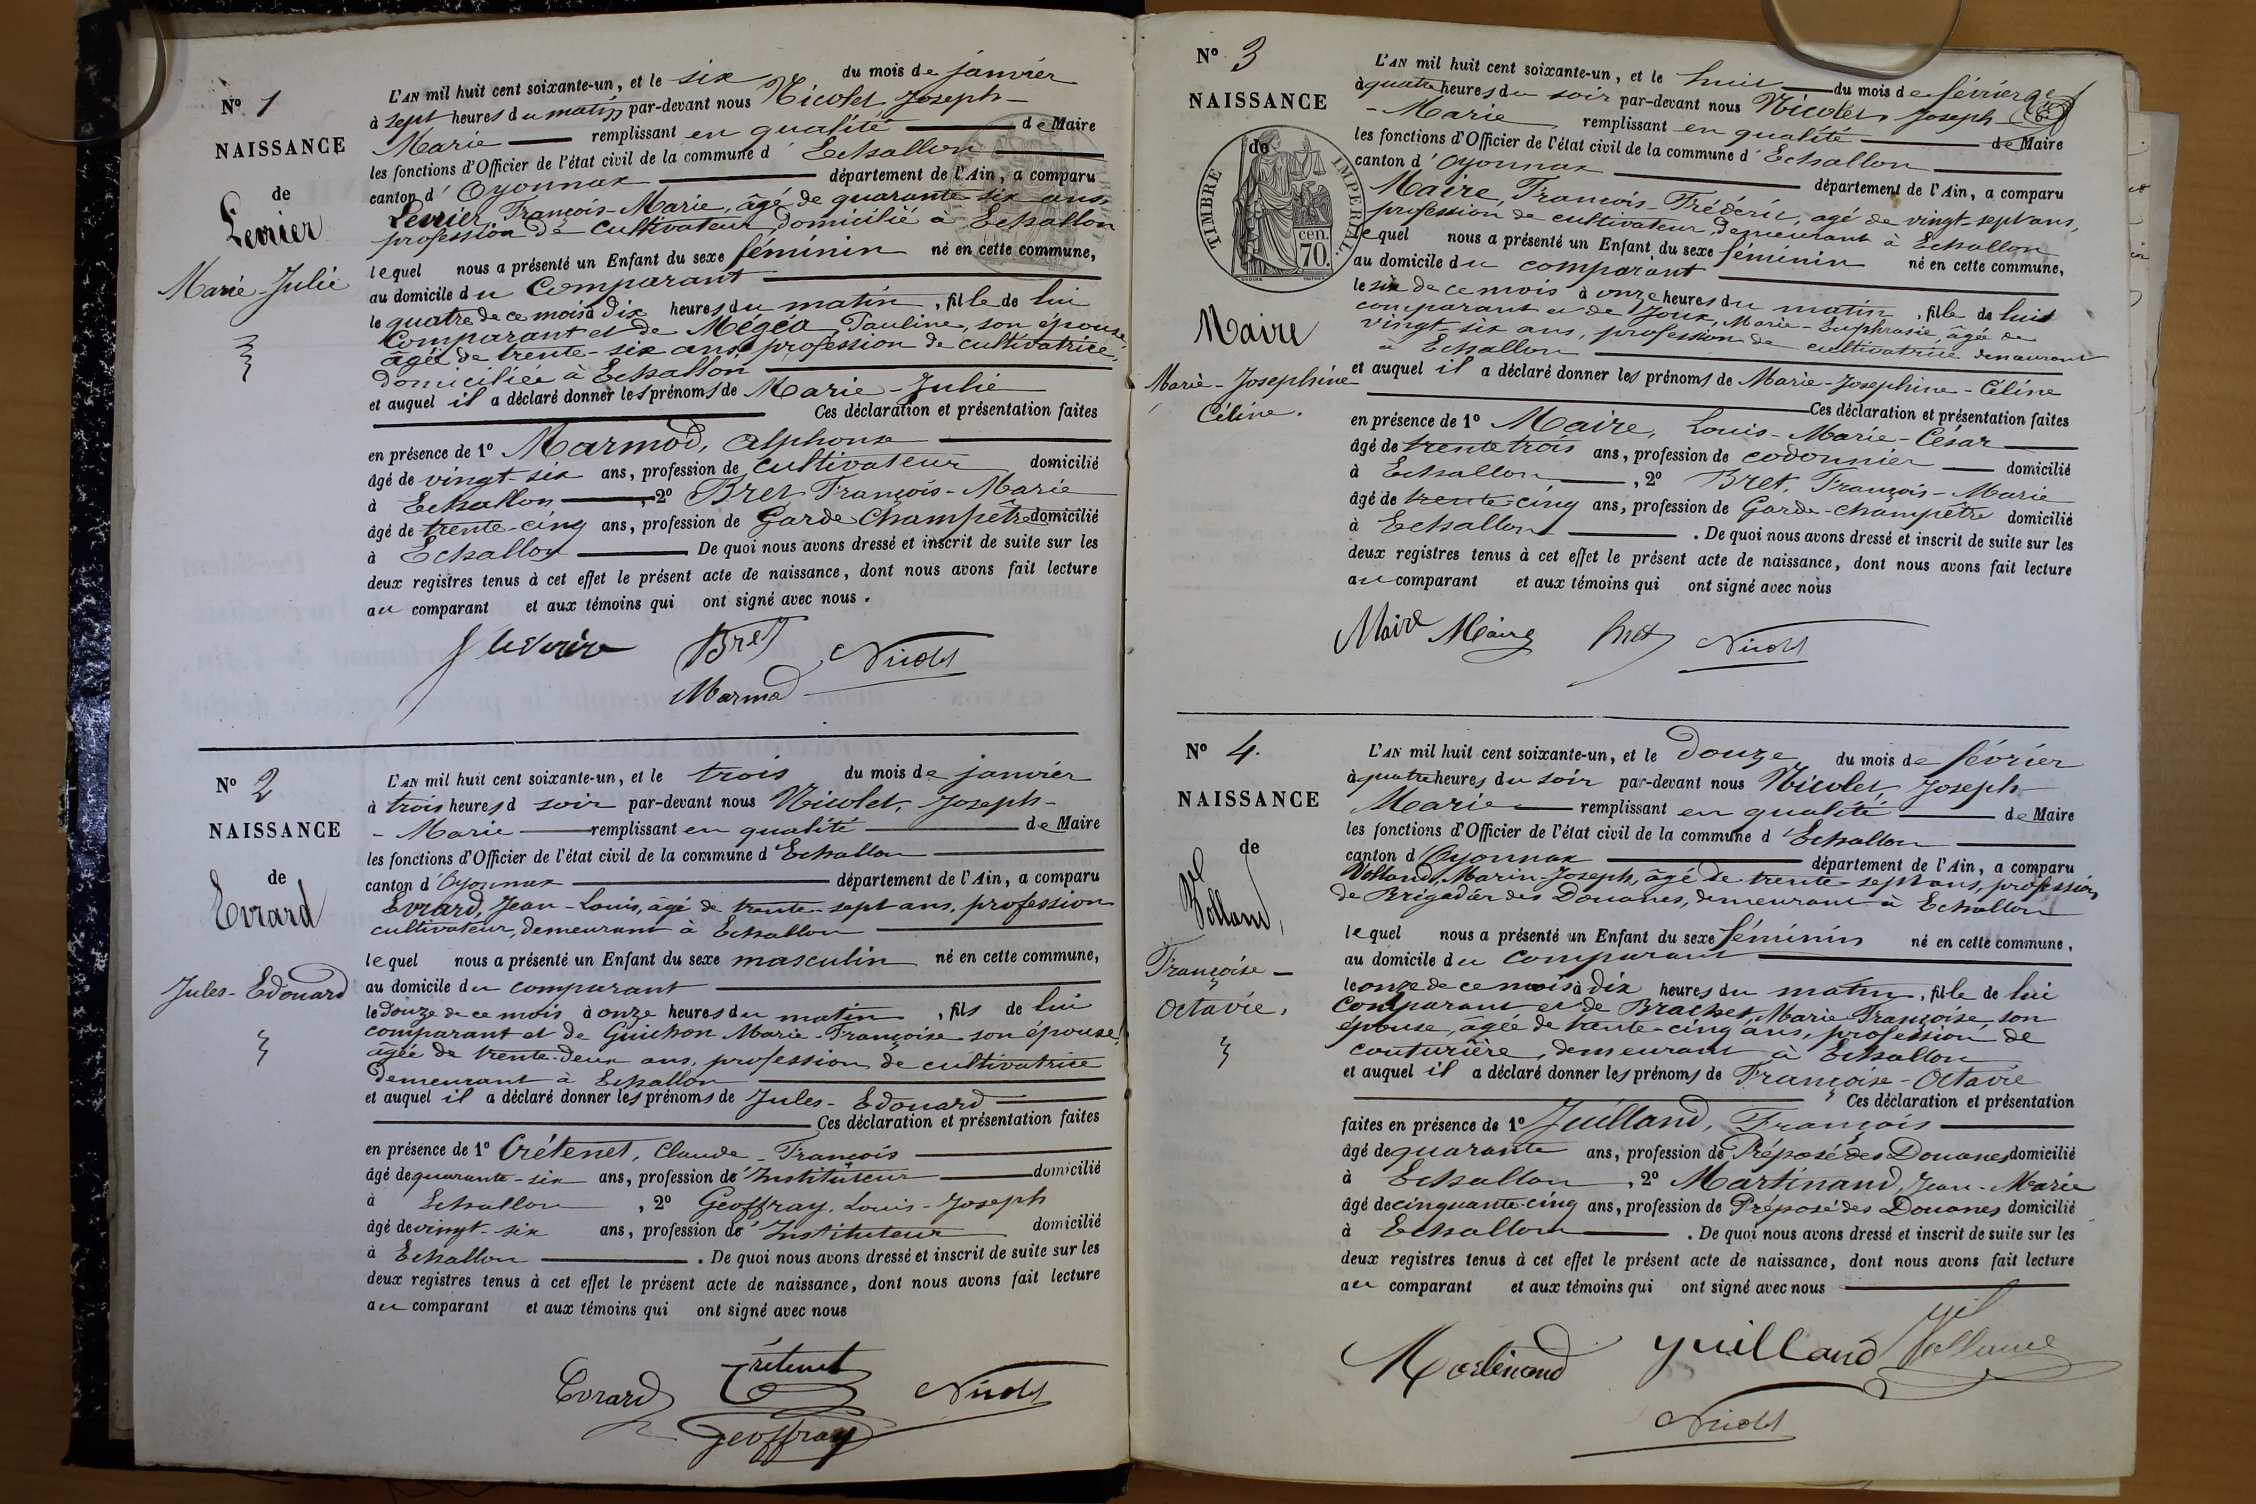 N° 1
NAISSANCE
de
Levrier
Marie-Julie
L'AN mil huit cent soixante-un, et le six du mois de janvier
à sept heures du matin par-devant nous Nicolet, Joseph-
Marie remplissant en qualité de Maire
les fonctions d'Officier de l'état civil de la commune d'Echallon
canton d'Oyonnax département de l'Ain, a comparu
Levrier, François-Marie, âgé de quarante-six ans,
profession de cultivateur domicilié à Echallon
lequel nous a présenté un Enfant du sexe féminin né en cette commune,
au domicile du comparant
le quatre de ce mois à dix heures du matin, fille de lui
comparant et de Mégéa, Pauline, son épouse,
âgée de trente-six ans, profession de cultivatrice,
domiciliée à Echallon
et auquel il a déclaré donner les prénoms de Marie-Julie
Ces déclaration et présentation faites
en présence de 1° Marmod, Alphonse
âgé de vingt-six ans, profession de cultivateur domicilié
à Echallon, 2° Bret François-Marie
âgé de trente-cinq ans, profession de Garde Champêtre domicilié
à Echallon De quoi nous avons dressé et inscrit de suite sur les
deux registres tenus à cet effet le présent acte de naissance, dont nous avons fait lecture
au comparant et aux témoins qui ont signé avec nous.
Bret Nicolet
Marmod
N° 2
NAISSANCE
de
Evrard
Jules-Edouard
L'AN mil huit cent soixante-un, et le trois du mois de janvier
à trois heures d soir par-devant nous Nicolet, Joseph-
-Marie remplissant en qualité de Maire
les fonctions d'Officier de l'état civil de la commune d'Echallon
canton d'Oyonnax département de l'Ain, a comparu
Evrard, Jean-Louis, âgé de trente-sept ans, profession
cultivateur, demeurant à Echallon
lequel nous a présenté un Enfant du sexe masculin né en cette commune,
au domicile du comparant
le douze de ce mois à onze heures du matin, fils de lui
comparant et de Guichon Marie-Françoise son épouse,
âgée de trente-deux ans, profession de cultivatrice
demeurant à Echallon
et auquel il a déclaré donner les prénoms de Jules-Edouard
Ces déclaration et présentation faites
en présence de 1° Crétenet, Claude-François
âgé de quarante-six ans, profession de Instituteur domicilié
à Echallon, 2° Geoffray, Louis-Joseph
âgé de vingt-six ans, profession de Instituteur domicilié
à Echallon. De quoi nous avons dressé et inscrit de suite sur les
deux registres tenus à cet effet le présent acte de naissance, dont nous avons fait lecture
au comparant et aux témoins qui ont signé avec nous
Evrard Crétenet Nicolet
Geoffray
N° 3
NAISSANCE
de
TIMBRE IMPERIAL.
cen.
70.
Maire
Marie-Josephine
Céline.
L'AN mil huit cent soixante-un, et le huit du mois de février
à quatre heures du soir par-devant nous Nicolet, Joseph
-Marie remplissant en qualité de Maire
les fonctions d'Officier de l'état civil de la commune d'Echallon
canton d'Oyonnax département de l'Ain, a comparu
Maire, François-Frédéric, âgé de vingt-sept ans,
profession de cultivateur, demeurant à Echallon
lequel nous a présenté un Enfant du sexe féminin né en cette commune,
au domicile du comparant
le six de ce mois à onze heures du matin, fille de lui
comparant et de Joux, Marie-Euphrasie, âgée de
vingt-six ans, profession de cultivatrice demeurant
à Echallon
et auquel il a déclaré donner les prénoms de Marie-Josephine-Céline
Ces déclaration et présentation faites
en présence de 1° Maire, Louis-Marie-César
âgé de trente trois ans, profession de codonnier domicilié
à Echallon, 2° Bret, François-Marie
âgé de trente-cinq ans, profession de Garde-champêtre domicilié
à Echallon. De quoi nous avons dressé et inscrit de suite sur les
deux registres tenus à cet effet le présent acte de naissance, dont nous avons fait lecture
au comparant et aux témoins qui ont signé avec nous
Maire Maire Bret Nicolet
N° 4.
NAISSANCE
de
Volland,
Françoise-
Octavie,
L'AN mil huit cent soixante-un, et le douze du mois de février
à quatre heures du soir par-devant nous Nicolet, Joseph-
Marie remplissant en qualité de Maire
les fonctions d'Officier de l'état civil de la commune d'Echallon
canton d'Oyonnax département de l'Ain, a comparu
Volland, Marin-Joseph, âgé de trente-sept ans, profession
de Brigadier des Douanes, demeurant à Echallon
lequel nous a présenté un Enfant du sexe féminin né en cette commune,
au domicile du comparant
le onze de ce mois à dix heures du matin, fille de lui
comparant et de Brachet, Marie Françoise son
épouse, âgée de trente-cinq ans, profession de
couturière, demeurant à Echallon
et auquel il a déclaré donner les prénoms de Françoise-Octavie
Ces déclaration et présentation
faites en présence de 1° Juilland, François
âgé de quarante ans, profession de Préposé des Douanes domicilié
à Echallon, 2° Martinand, Jean-Marie
âgé de cinquante-cinq ans, profession de Préposé des Douanes domicilié
à Echallon. De quoi nous avons dressé et inscrit de suite sur les
deux registres tenus à cet effet le présent acte de naissance, dont nous avons fait lecture
au comparant et aux témoins qui ont signé avec nous
Martinand Juilland Volland
Nicolet